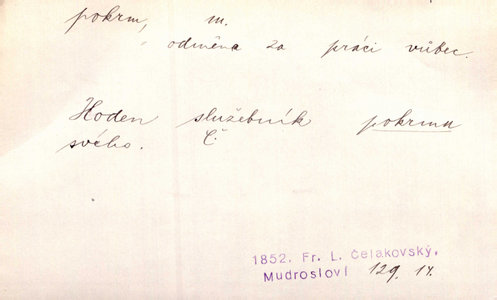 pokrm, m.
odměna za práci vůbec.
Hoden služebník pokrmu
svého. Č.
1852. Fr. L. Čelakovský,
Mudrosloví 129. 14.